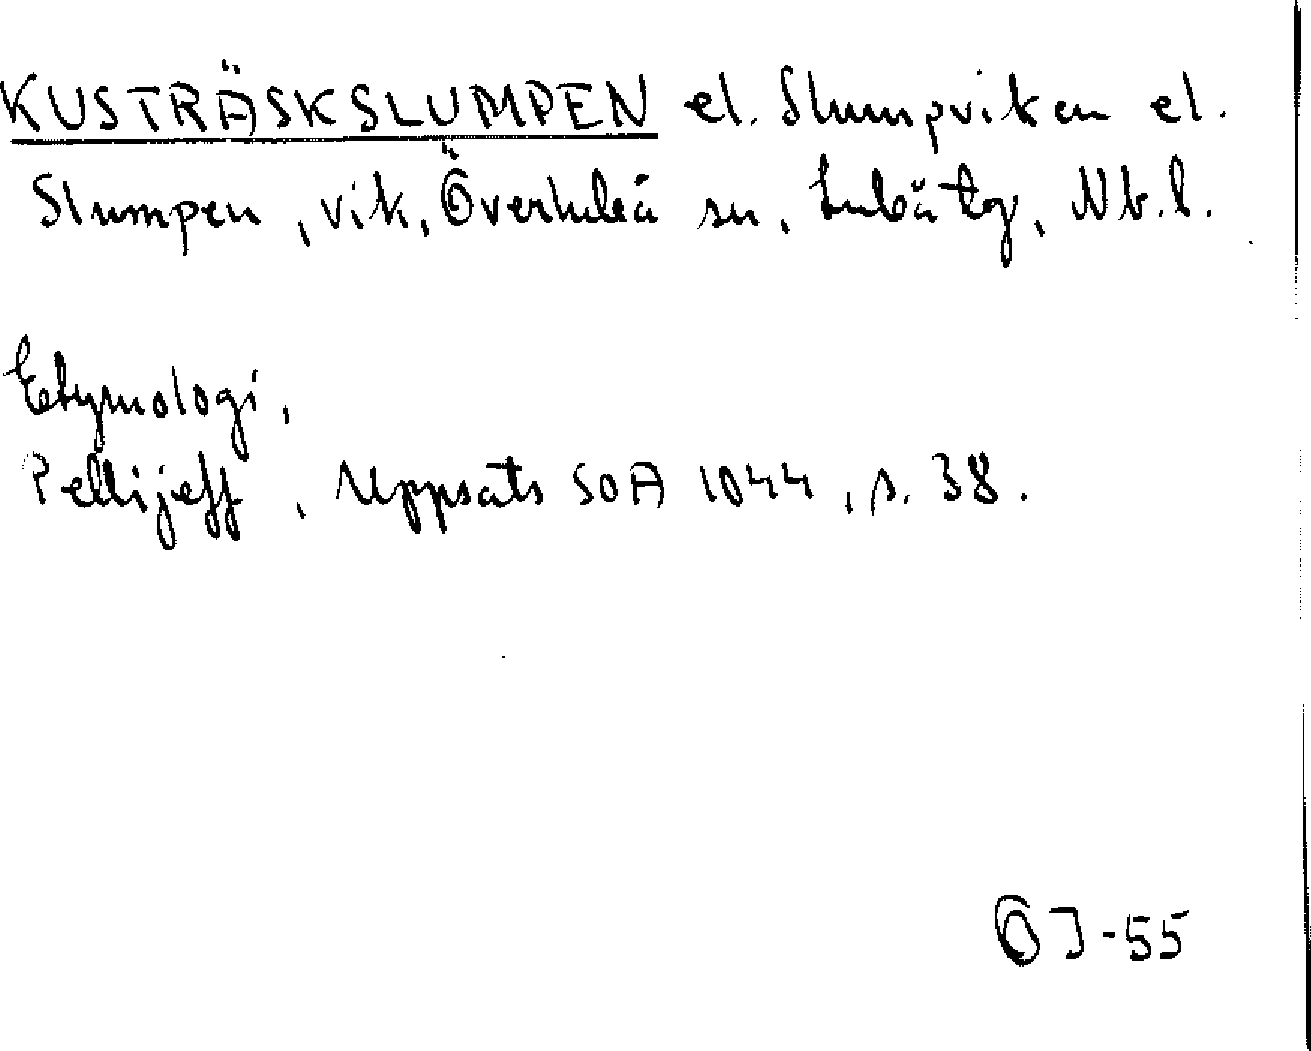 KUSTRÄSKSLUMPEN el. Slumpviken el.
Slumpen, vik, Överluleå sn, Luleå tg, Nb.l.
Etymologi,
Pellijeff, Uppsats SOA 1044, s. 38.
OJ-55